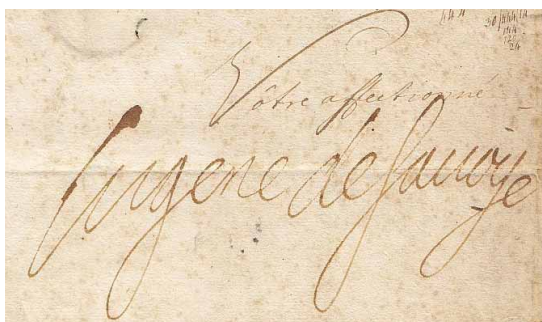 444
Vôtre affectionné
Eugene de Savoÿe